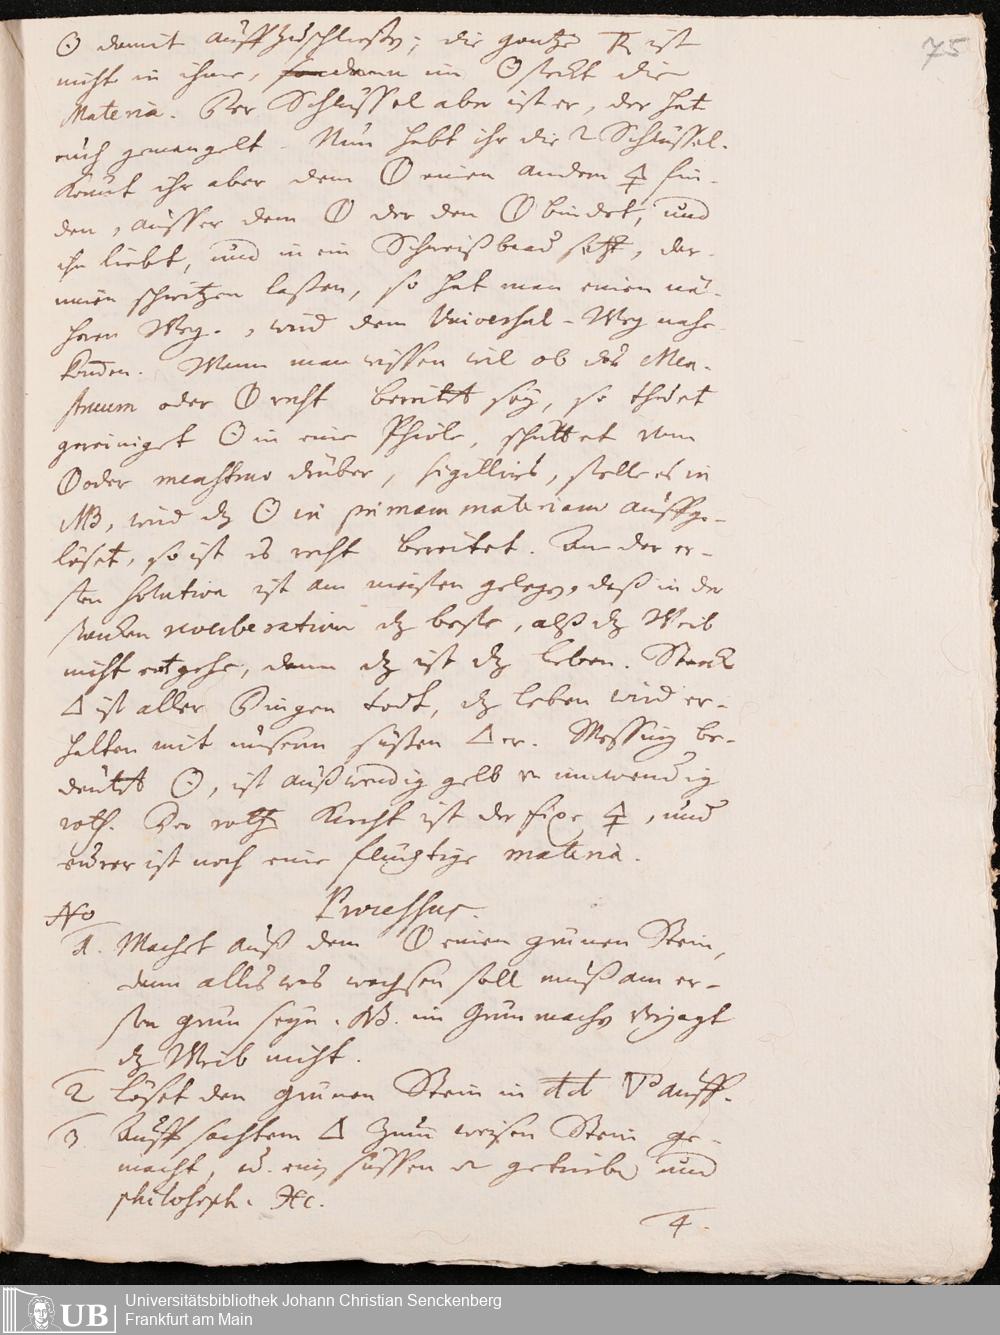 75
☉ damit auffzuschließen; die gantze ist
nicht in ihme, sondern im ☉ steckt die
Materia. Der Schlüssel aber ist er, der hat
euch gemangelt. Nun habt ihr die 2 Schlüssel.
Könnt ihr aber dem einen andern fin-
den, ausser dem der den bindet, und
ihn liebt, und in ein Schweißbaad setzt, dar-
innen schwitzen laßen, so hat man einen nä-
hern Weg, und dem Universal-Weg nahe
kommen. Wenn man wissen wil ob das Men-
struum oder recht bereitet sey, so thuet
gereiniget ☉ in eine Phiole, schüttet vom
oder menstruo drüber, sigillirts, stelle es in
MB, wird dz ☉ in primam materiam auffge-
löset, so ist es recht bereitet. An der er-
sten solution ist am meisten gelegen, daß in der
starcken dz beste, alß dz Weib
nicht entgehe, denn dz ist dz leben. Starck
△ ist aller Dingen todt, dz leben wird er-
halten mit unserm süßen △er. Messing be-
deutet ☉, ist außwendig gelb inwendig
roth. Der rothe Knecht ist der fixe, und
eürer ist noch eine flüchtige materia.
Processus.
No
1. Machet auß dem einen grünen Stein,
denn alles was wachsen soll muß am er-
sten grün seyn. NB. im Grün machen verjagt
dz Weib nicht.
2 löset den grünen Stein in auff.
3. Auff sachtem △ zum weisen Stein ge-
macht, und
philosoph. &c.
4.
Universitätsbibliothek Johann Christian Senckenberg
Frankfurt am Main
UB